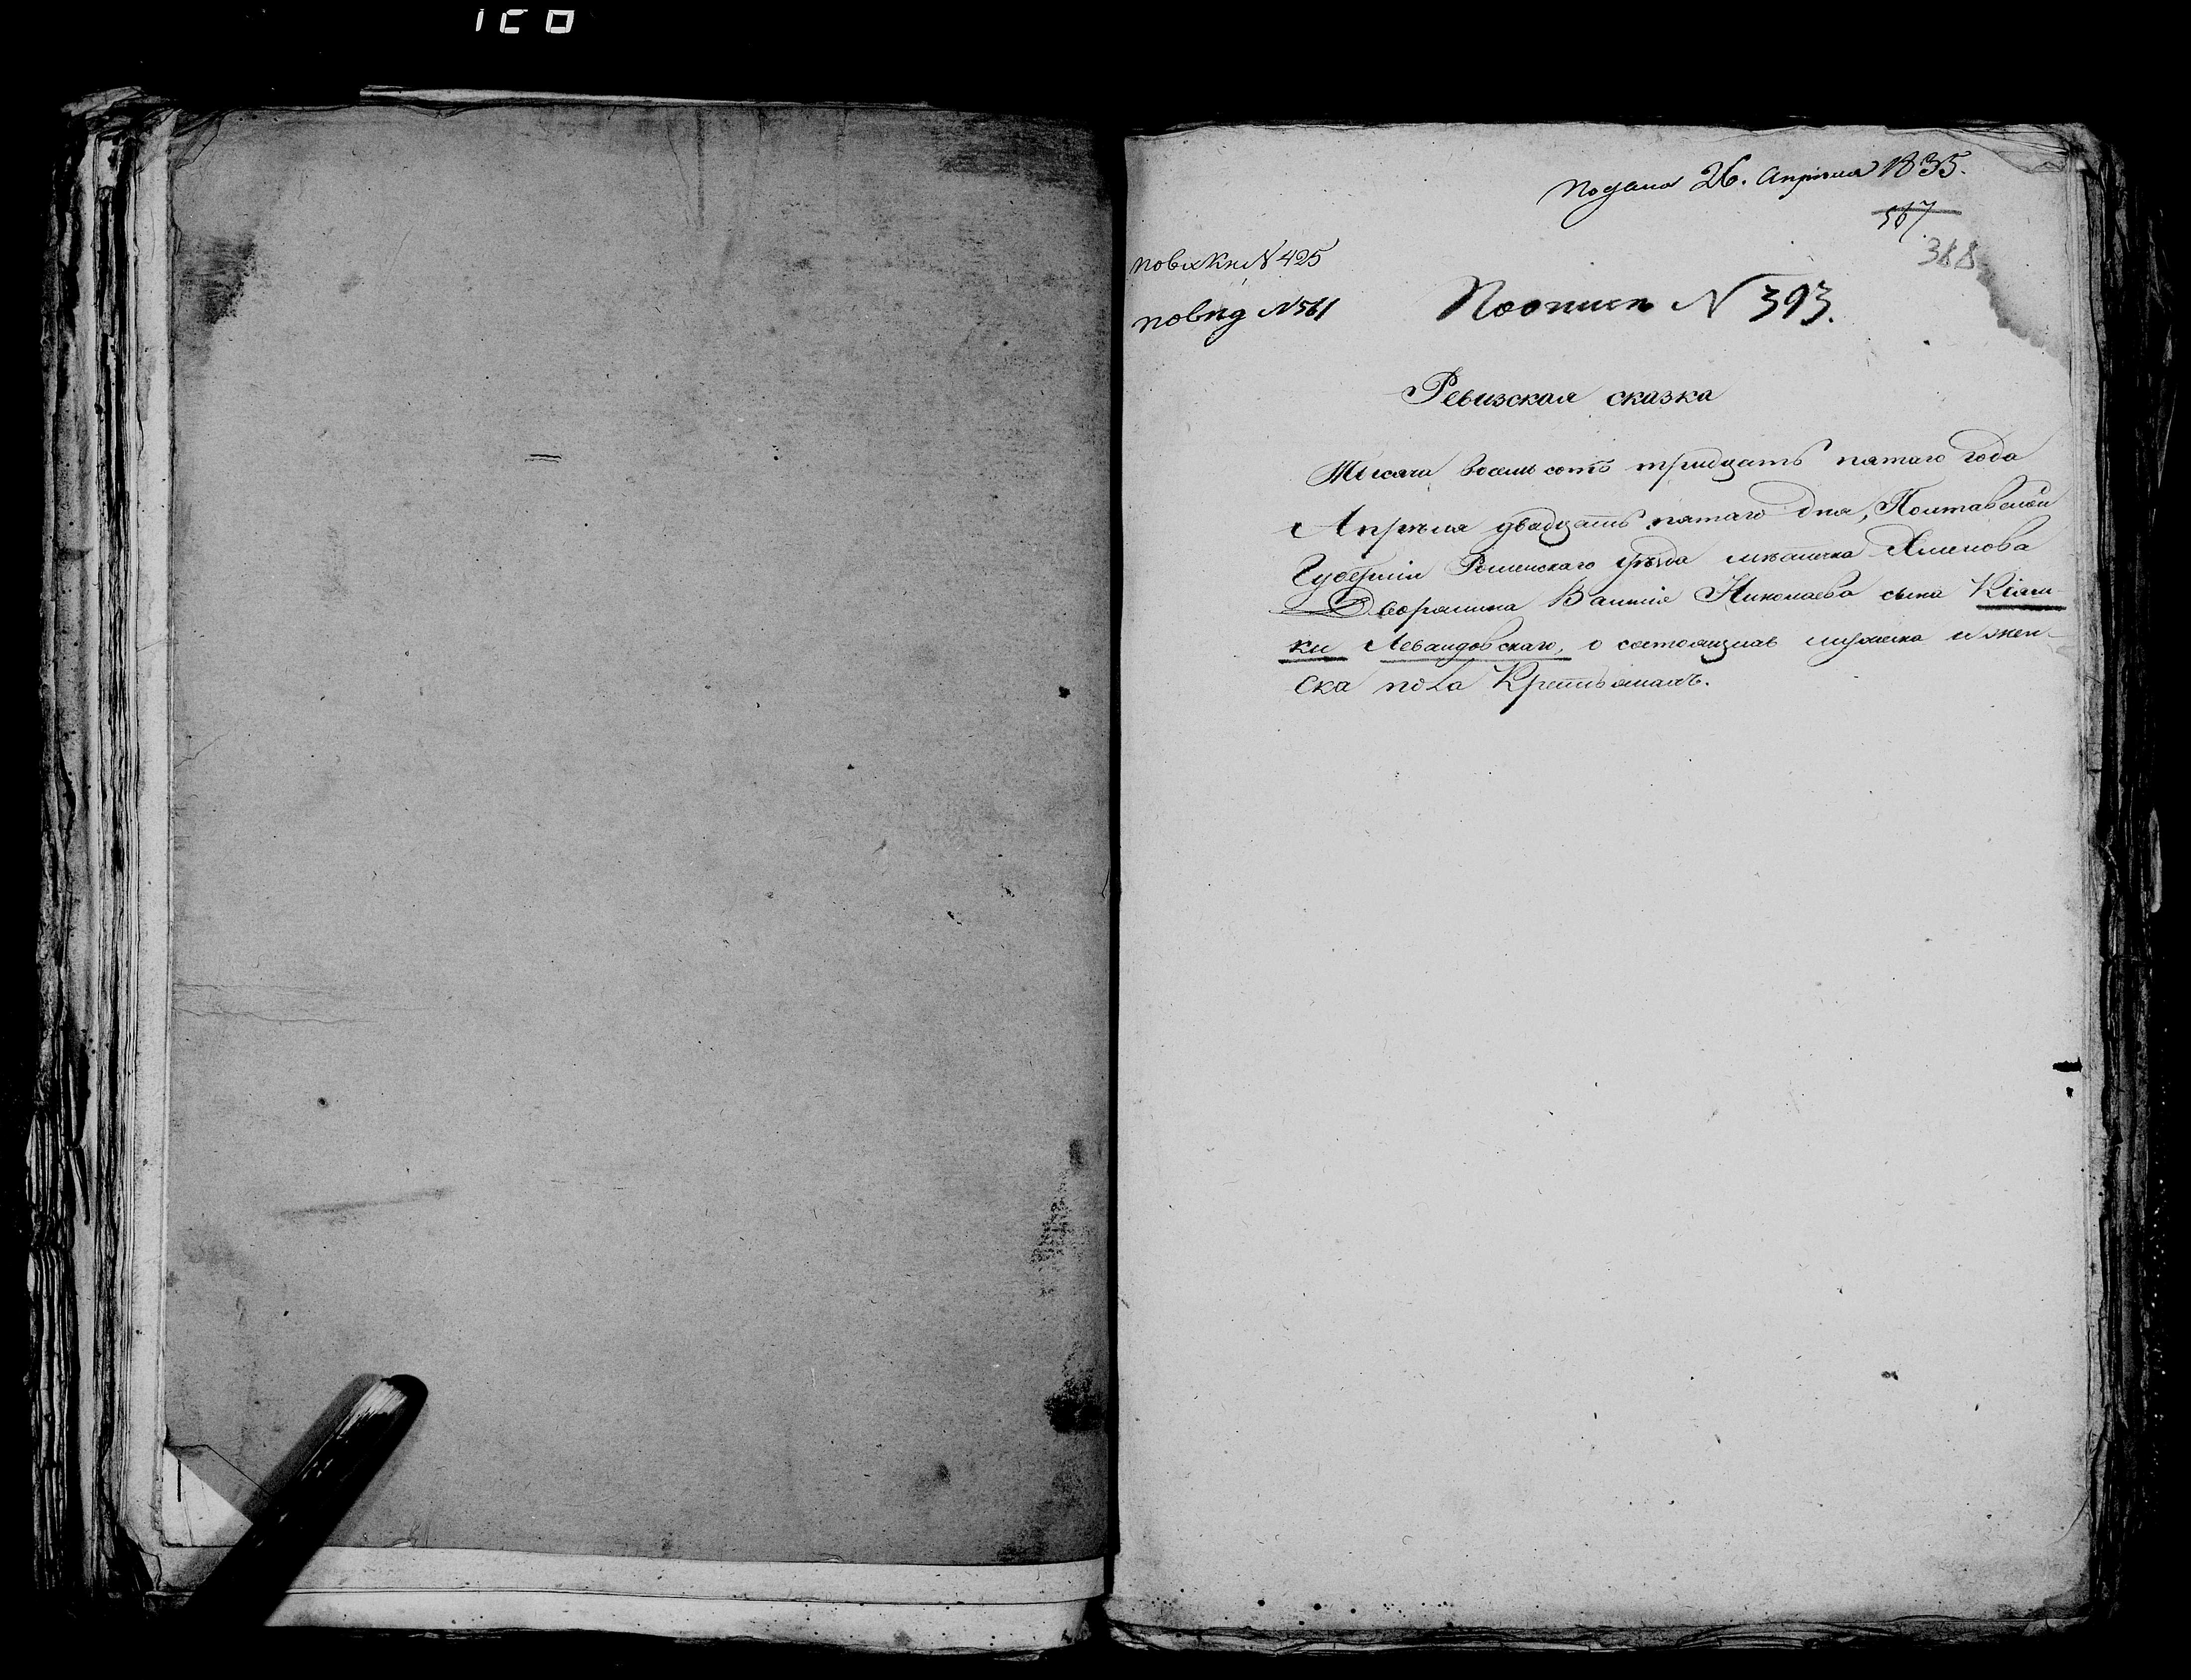 Подана 26. Апрѣля 1835.
567
388
повх Кн. N 425
По описи N 393.
Ревизская сказка
Тысяча восемь сотъ тридцать пятаго года
Апрѣля двадцать пятаго дня, Полтавской
Губерніи Роменскаго уѣзда мѣстечка Хмелова
Дворянина Василія Николаева сына Кіяш-
ки Левандовскаго, о состоящихъ мужеска и жен-
ска пола Крестьянахъ.